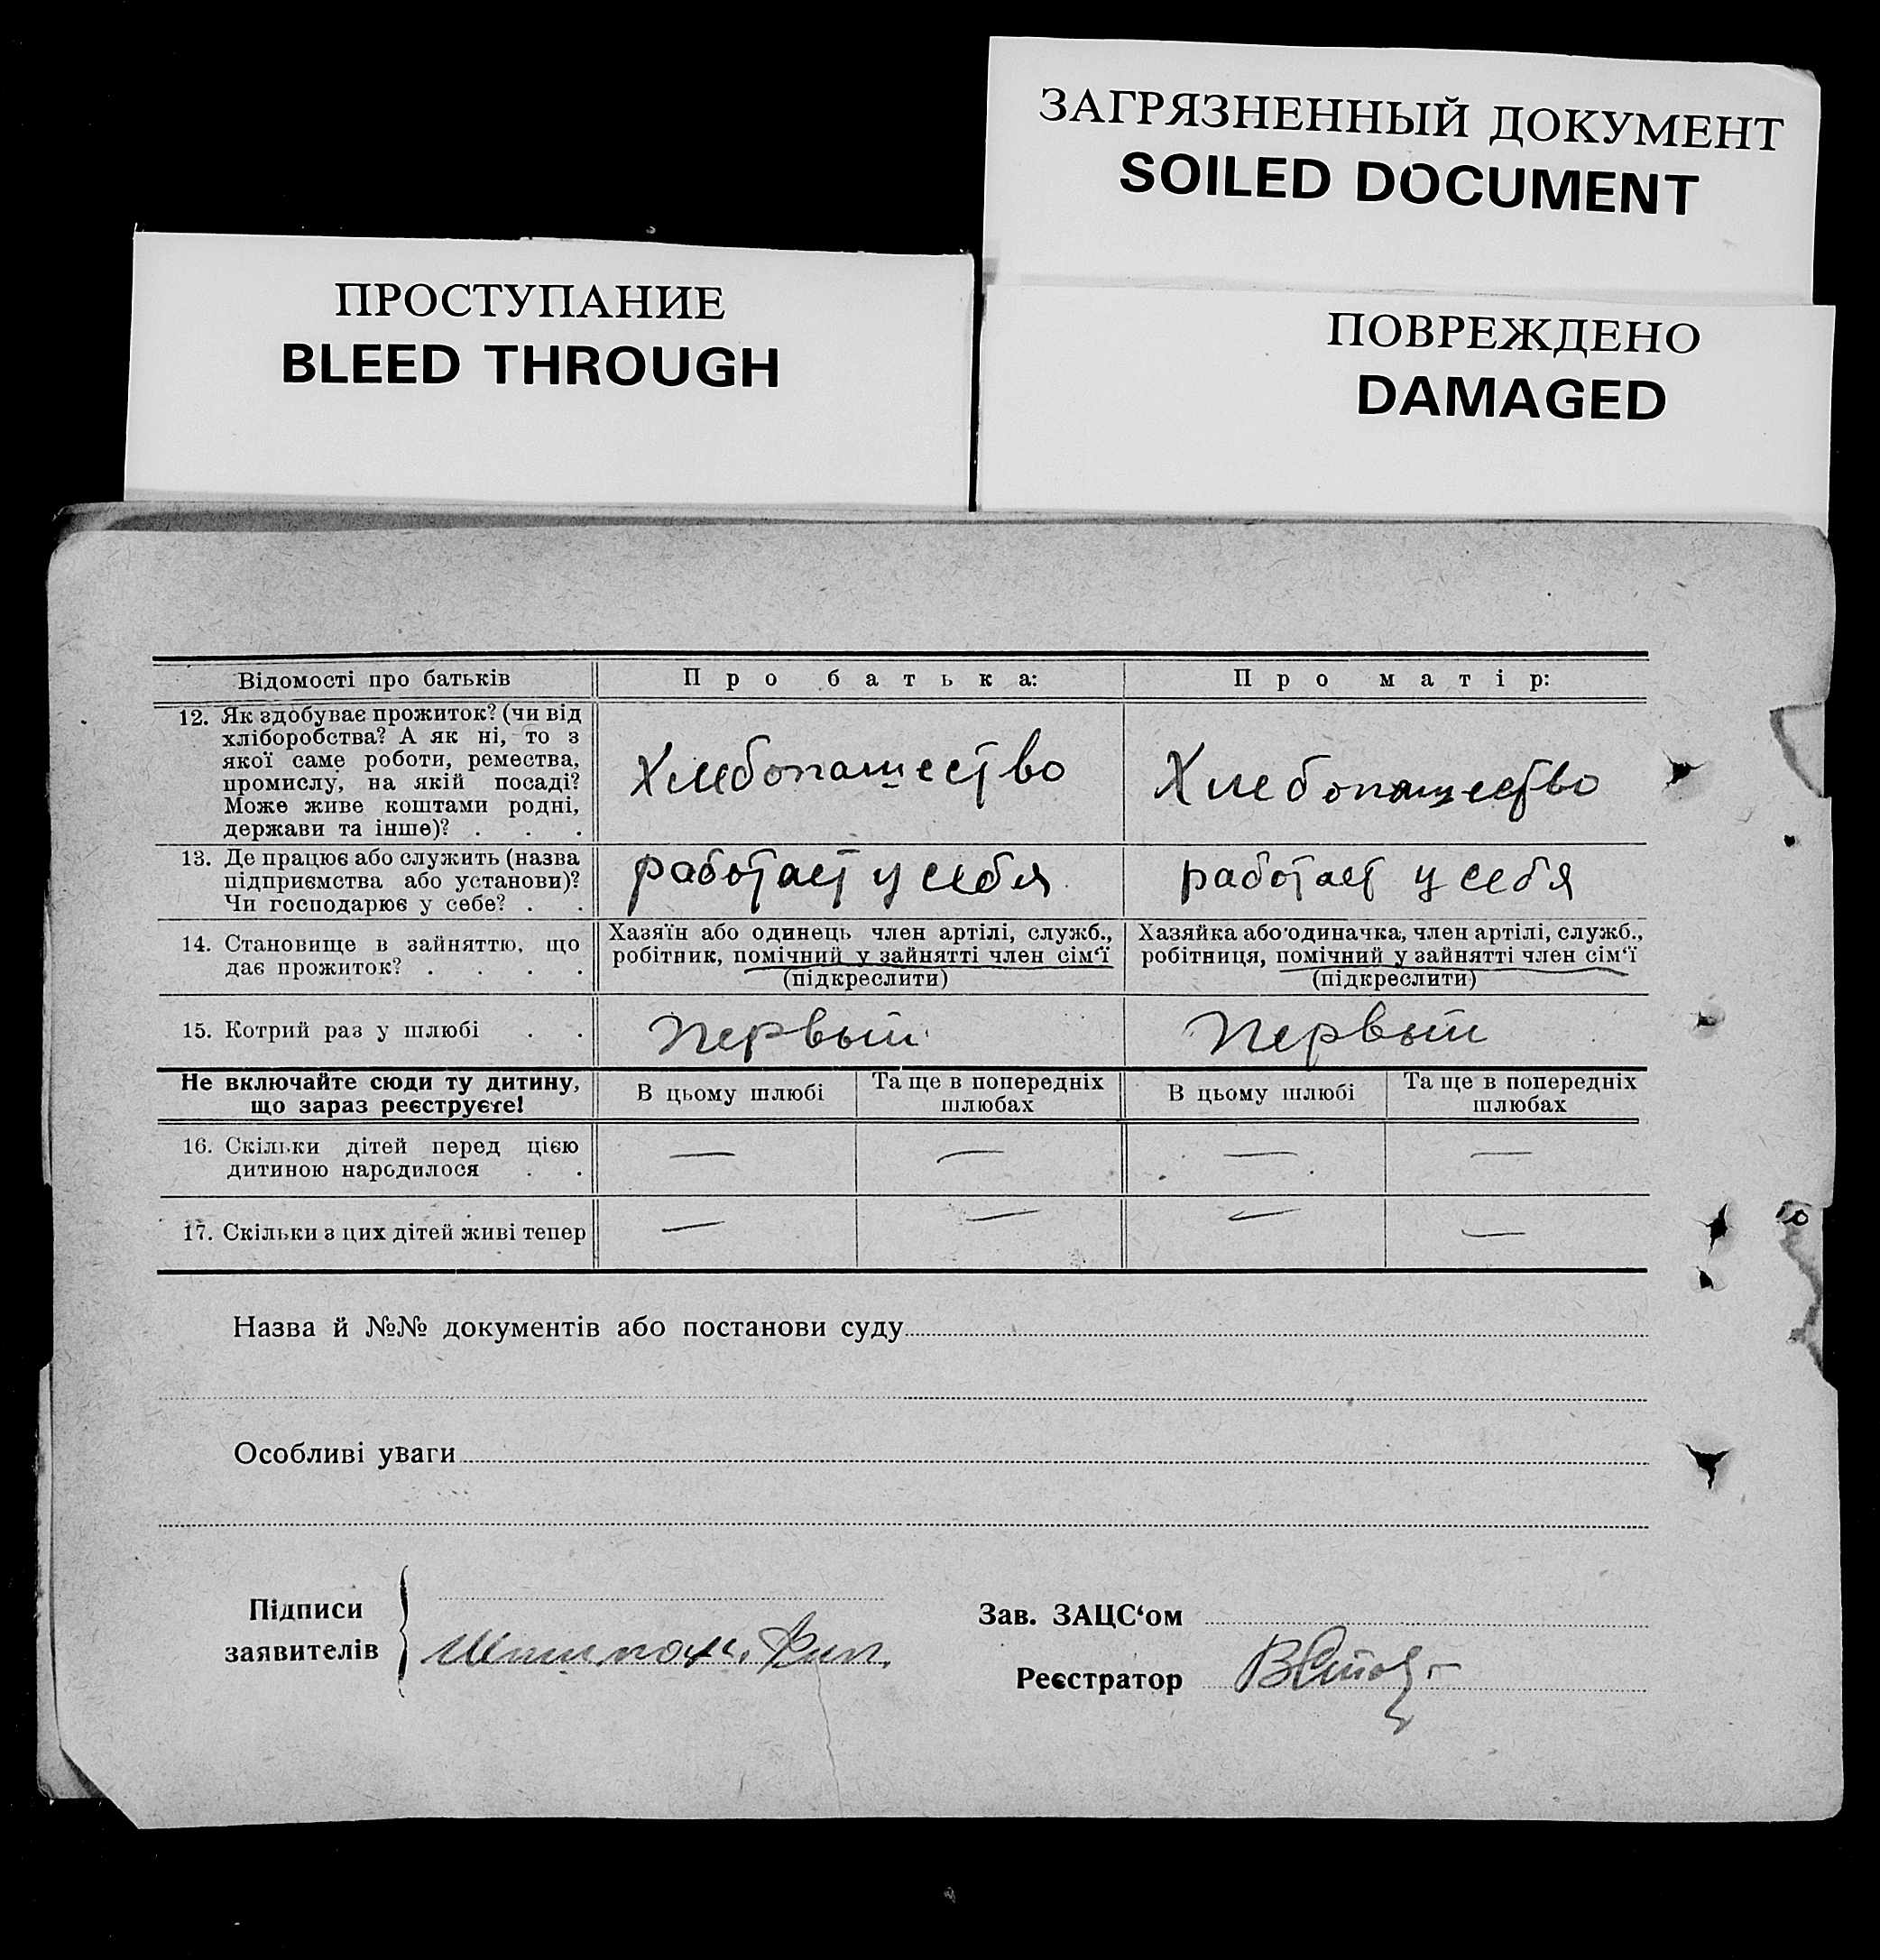 ЗАГРЯЗНЕННЫЙ ДОКУМЕНТ
SOILED DOCUMENT
ПРОСТУПАНИЕ
BLEED THROUGH
ПОВРЕЖДЕНО
DAMAGED
Відомості про батьків
Про батька:
Про матір:
12. Як здобуває прожиток? (чи від
хліборобства? А як ні, то з
якої саме роботи, ремества,
промислу, на якій посаді?
Може живе коштами родні,
держави та інше)? . . .
Хлебопашество
Хлебопашество
13. Де працює або служить (назва
підприємства або установи)?
Чи господарює у себе? . .
работает у себя
работает у себя
14. Становище в зайняттю, що
дає прожиток? . . . .
Хазяїн або одинець член артілі, служб.,
робітник, помічний у зайнятті член сім‘ї
(підкреслити)
Хазяйка або одиначка, член артілі, служб.,
робітниця, помічний у зайнятті член сім‘ї
(підкреслити)
15. Котрий раз у шлюбі . .
Первый
Первый
Не включайте сюди ту дитину,
що зараз реєструєте!
В цьому шлюбі
Та ще в попередніх
шлюбах
В цьому шлюбі
Та ще в попередніх
шлюбах
16. Скільки дітей перед цією
дитиною народилося . .
— — — —
17. Скільки з цих дітей живі тепер
— — — —
Назва й №№ документів або постанови суду
Особливі уваги
Підписи
заявителів
Зав. ЗАЦС‘ом
Реєстратор